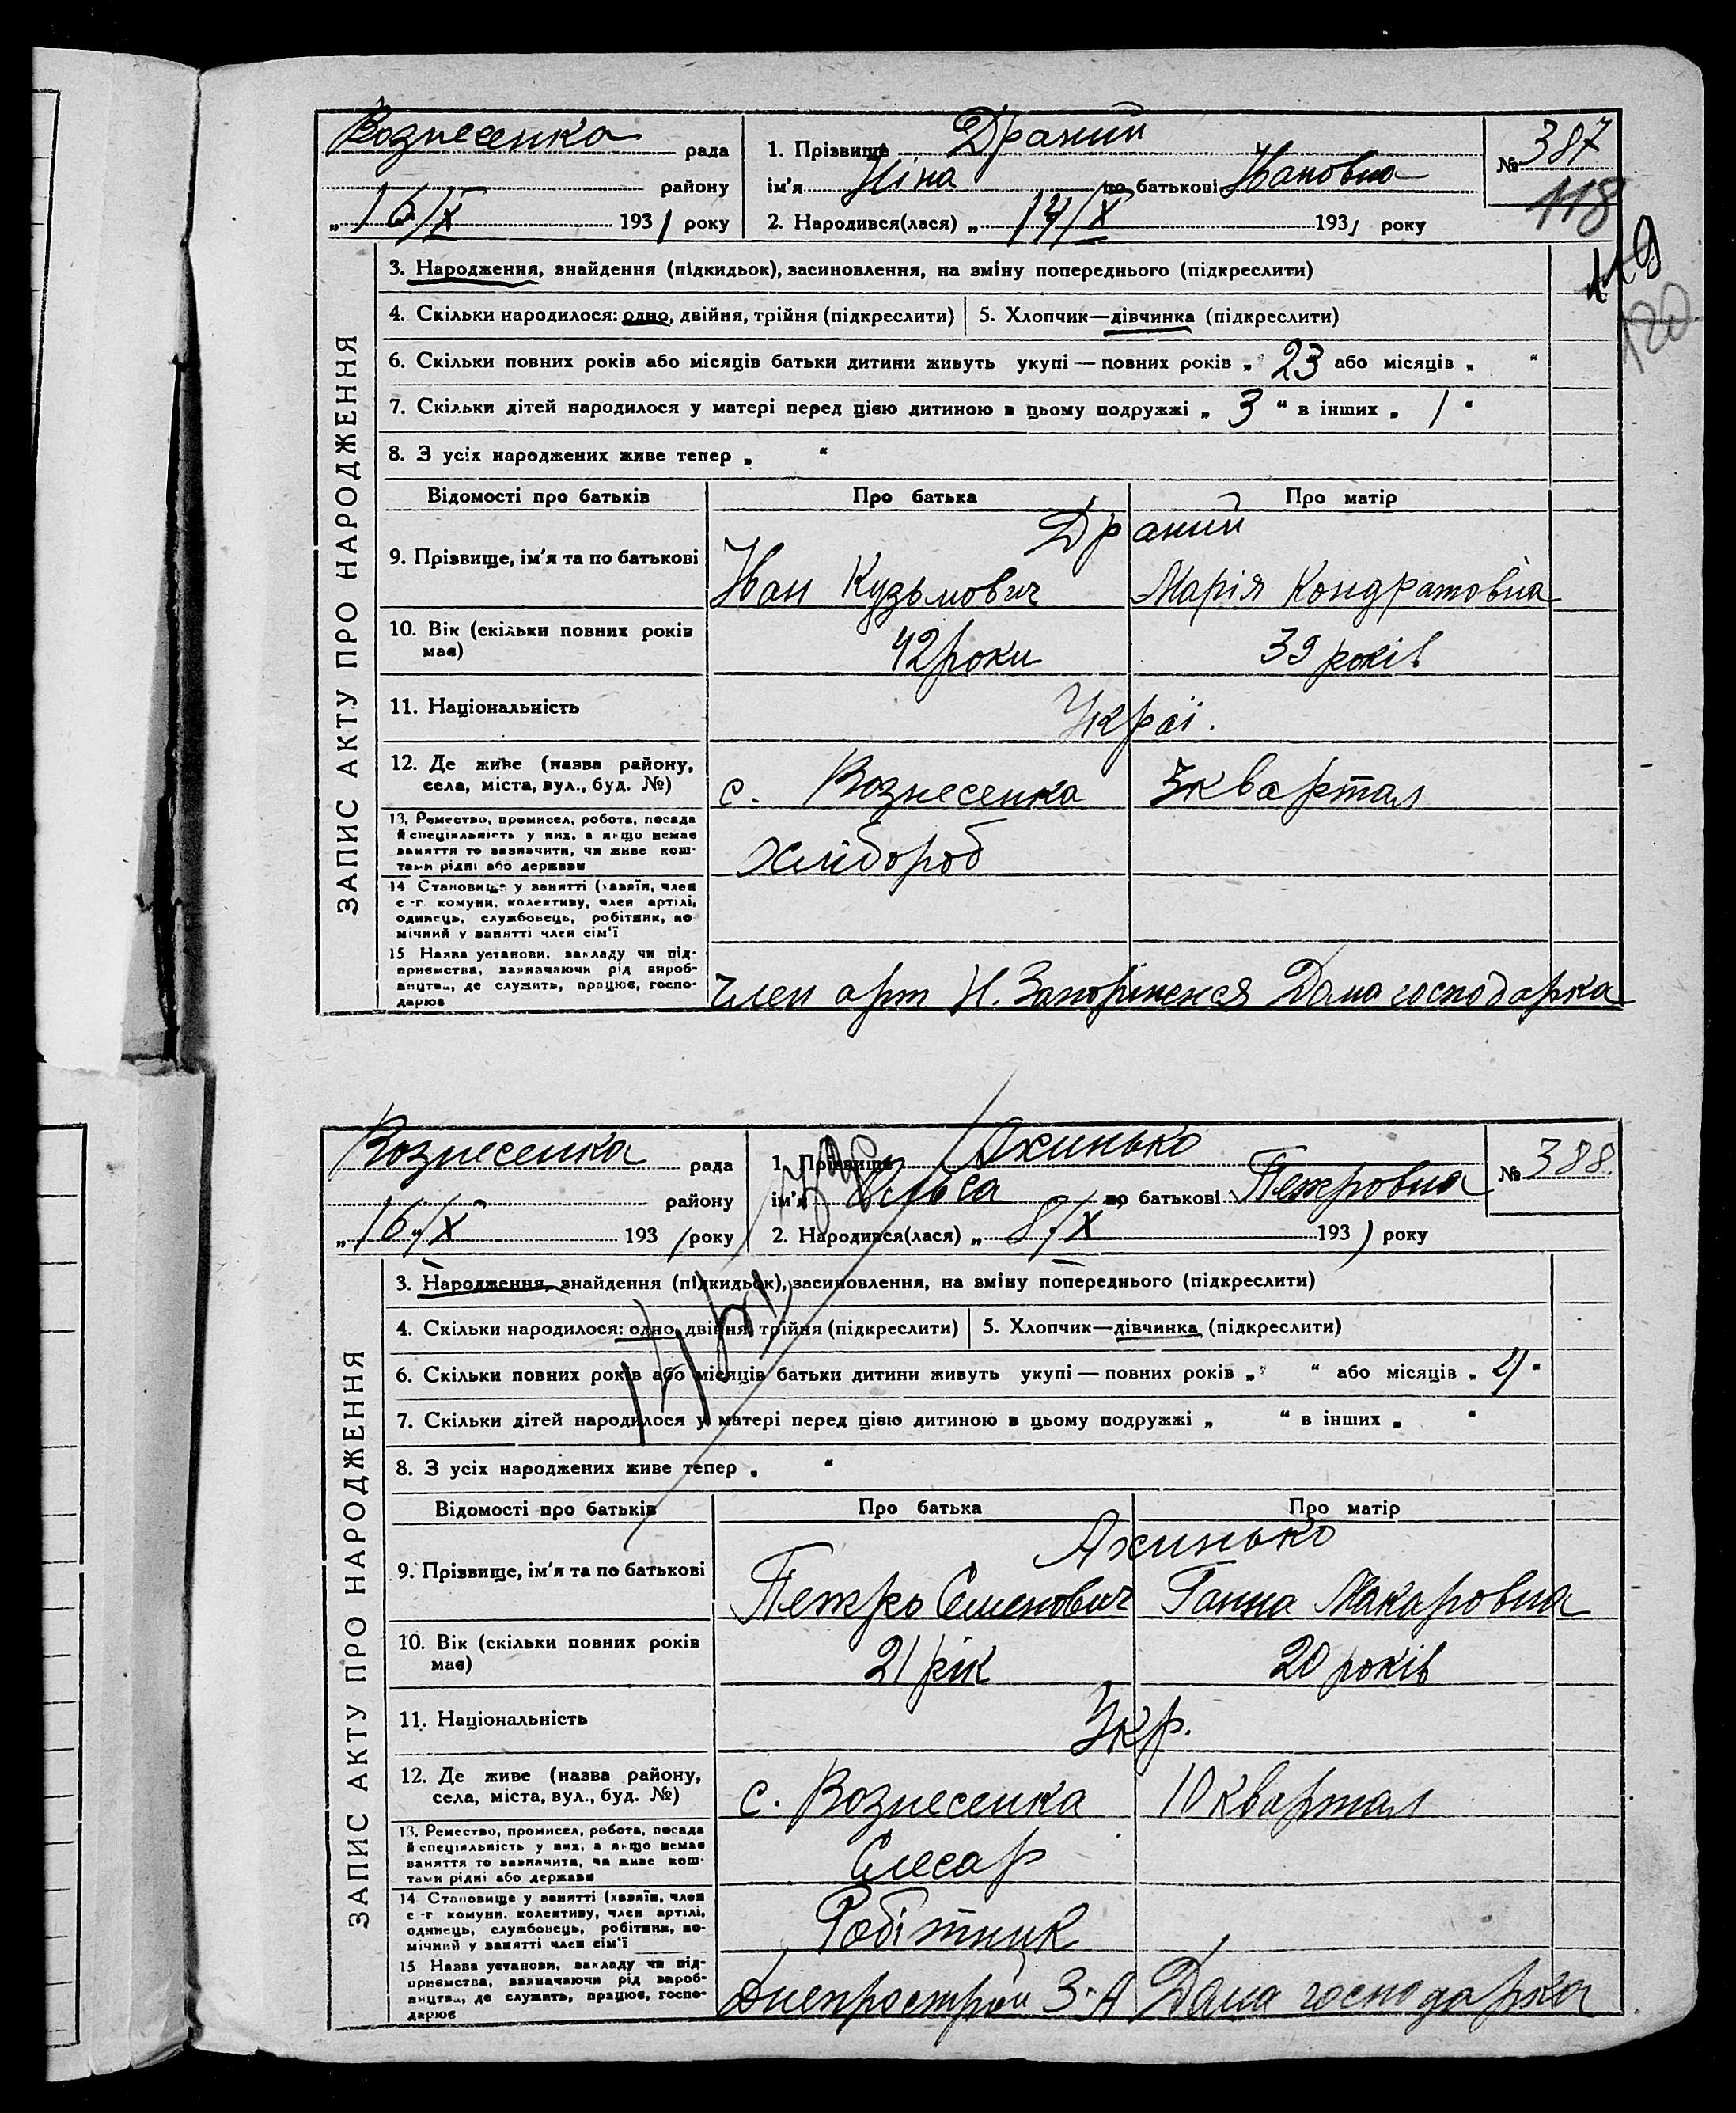 Вознесенка рада
району
„ 16/X 1931 року
1. Прізвище Драний
ім'я Ніна по батькові Івановна
2. Народився(лася) „ 14/X 1931 року
№ 387
118
119
120
ЗАПИС АКТУ ПРО НАРОДЖЕННЯ
3. Народження, знайдення (підкидьок), засиновлення, на зміну попереднього (підкреслити)
4. Скільки народилося: одно, двійня, трійня (підкреслити) 5. Хлопчик—дівчинка (підкреслити)
6. Скільки повних років або місяців батьки дитини живуть укупі — повних років „ 23 або місяців „ “
7. Скільки дітей народилося у матері перед цією дитиною в цьому подружжі „ 3 “ в інших „ 1 “
8. З усіх народжених живе тепер „ “
Відомості про батьків Про батька Про матір
Драний
9. Прізвище, ім'я та по батькові Іван Кузьмович Марія Кондратовна
10. Вік (скільки повних років
має) 42 роки 39 років
11. Національність Украї.
12. Де живе (назва району,
села, міста, вул., буд. №) с. Вознесенка 3 квартал
13. Ремество, промисел, робота, посада
й спеціяльність у них, а якщо немає
заняття то зазначити, чи живе кош-
тами рідні або держави Хлібороб
14 Становище у занятті (хазяїн, член
с-г. комуни, колективу, член артілі,
одинець, службовець, робітник, по-
мічний у занятті член сім'ї
15 Назва установи, закладу чи під-
приємства, зазначаючи рід вироб-
ництва, де служить, працює, госпо-
дарює член арт Н. Запоріжжя Дома господарка
Вознесенка рада
району
„ 16/X 1931 року
1. Прізвище Ахинько
ім'я Ольга по батькові Петровна
2. Народився(лася) „ 8/X 1931 року
№ 388.
ЗАПИС АКТУ ПРО НАРОДЖЕННЯ
3. Народження, знайдення (підкидьок), засиновлення, на зміну попереднього (підкреслити)
4. Скільки народилося: одно, двійня, трійня (підкреслити) 5. Хлопчик—дівчинка (підкреслити)
6. Скільки повних років або місяців батьки дитини живуть укупі — повних років „ “ або місяців „ 4 “
7. Скільки дітей народилося у матері перед цією дитиною в цьому подружжі „ “ в інших „ “
8. З усіх народжених живе тепер „ “
Відомості про батьків Про батька Про матір
Ахинько
9. Прізвище, ім'я та по батькові Петро Семенович Ганна Макаровна
10. Вік (скільки повних років
має) 21 рік 20 років
11. Національність Укр.
12. Де живе (назва району,
села, міста, вул., буд. №) с. Вознесенка 10 квартал
13. Ремество, промисел, робота, посада
й спеціяльність у них, а якщо немає
заняття то зазначити, чи живе кош-
тами рідні або держави Слесар
14 Становище у занятті (хазяїн, член
с-г. комуни, колективу, член артілі,
одинець, службовець, робітник, по-
мічний у занятті член сім'ї Робітник
15 Назва установи, закладу чи під-
приємства, зазначаючи рід вироб-
ництва, де служить, працює, госпо-
дарює Днепрострой Дома господарка